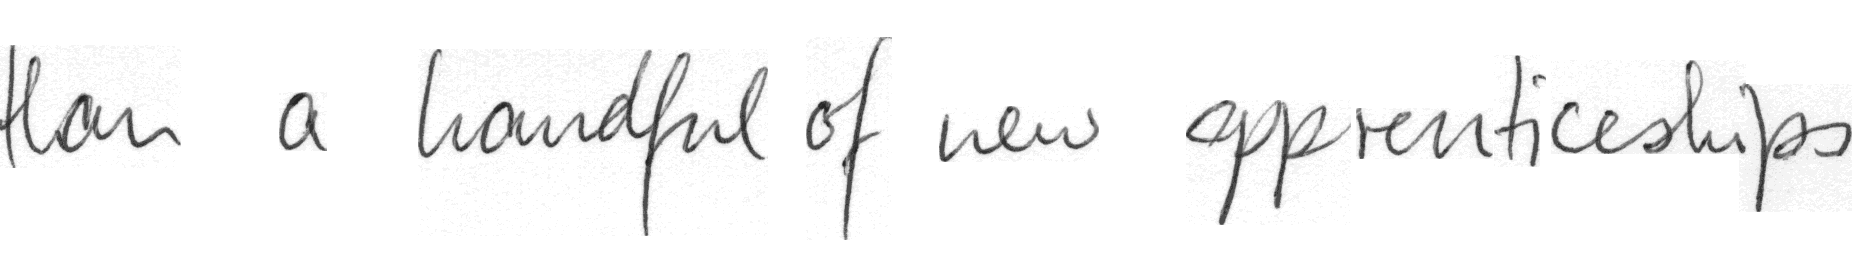 than a handful of new apprenticeships